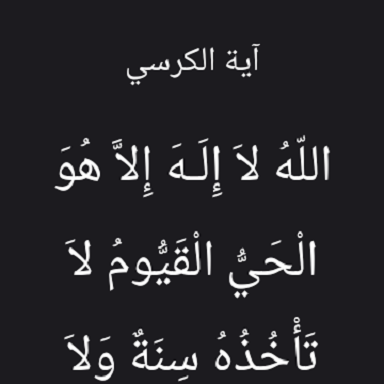 آية الكرسي
اللّهُ لاَ إِلَـهَ إِلاَّ هُوَ
الْحَيُّ الْقَيُّومُ لاَ
تَأْخُذُهُ سِنَةٌ وَلاَ